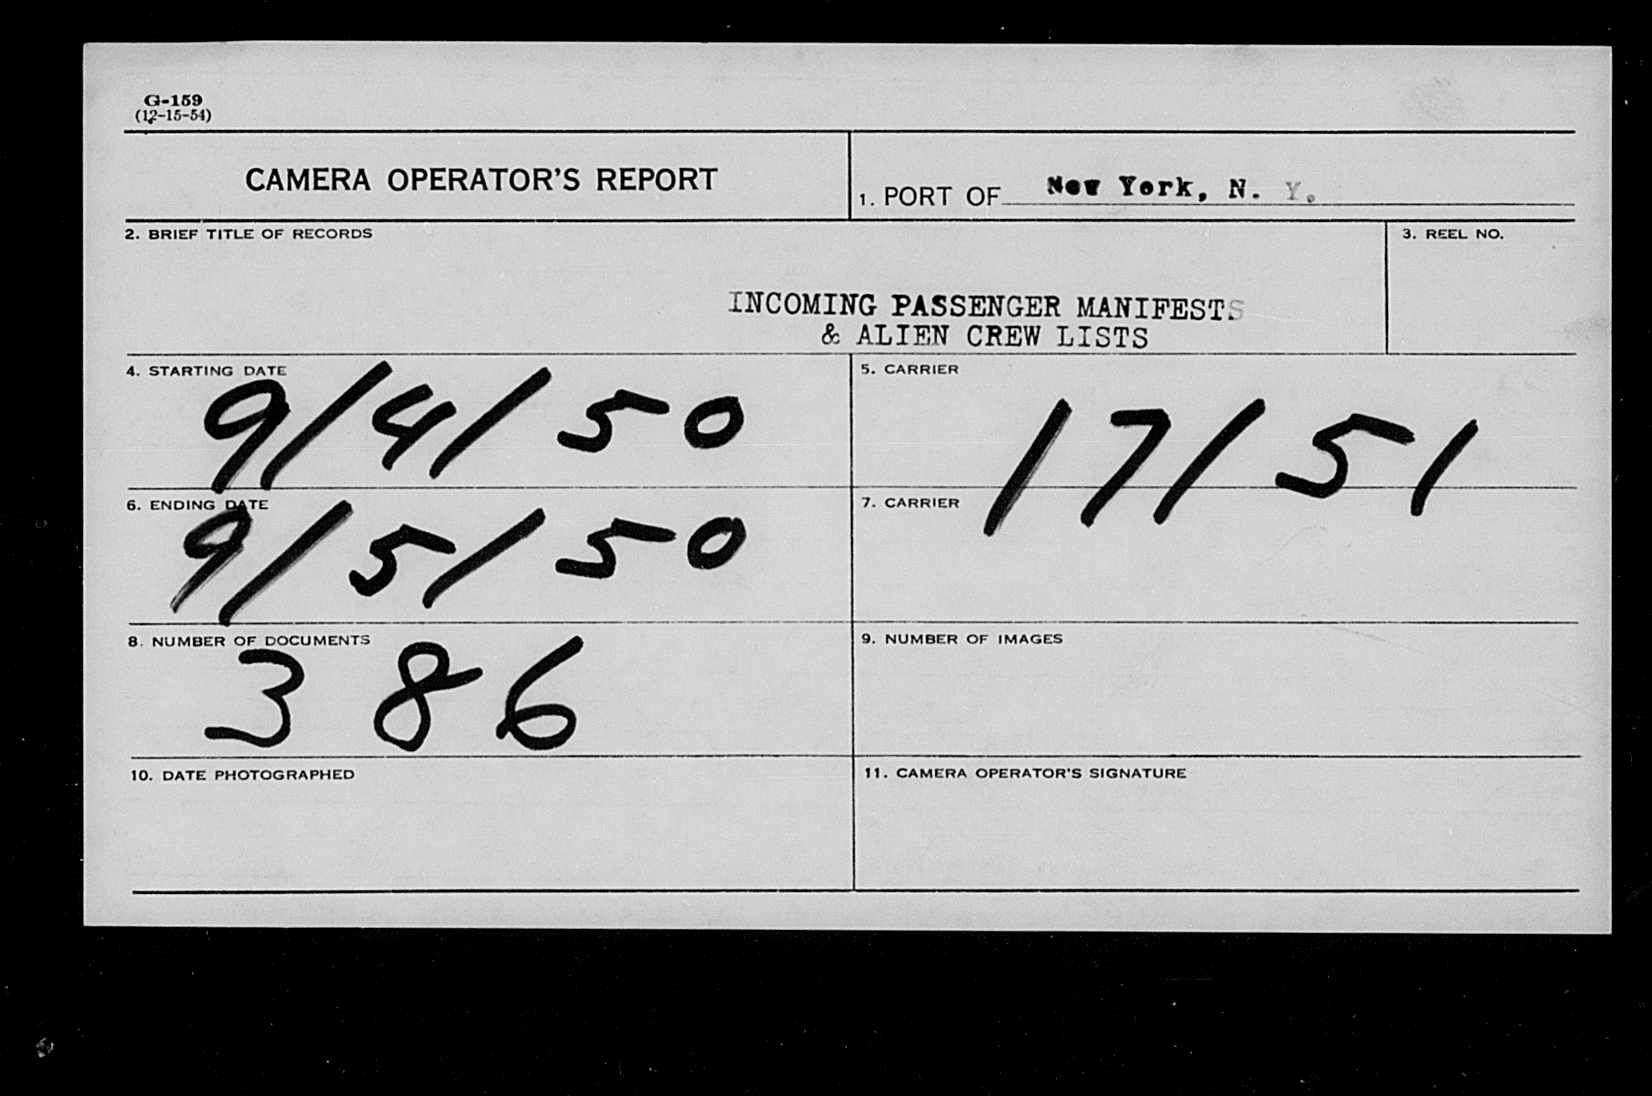 G-159
(12-15-54)
CAMERA OPERATOR'S REPORT
1. PORT OF New York, N. Y.
2. BRIEF TITLE OF RECORDS
3. REEL NO.
INCOMING PASSENGER MANIFESTS
& ALIEN CREW LISTS
4. STARTING DATE
9/4/50
5. CARRIER
17151
6. ENDING DATE
9/5/50
7. CARRIER
8. NUMBER OF DOCUMENTS
386
9. NUMBER OF IMAGES
10. DATE PHOTOGRAPHED
11. CAMERA OPERATOR'S SIGNATURE